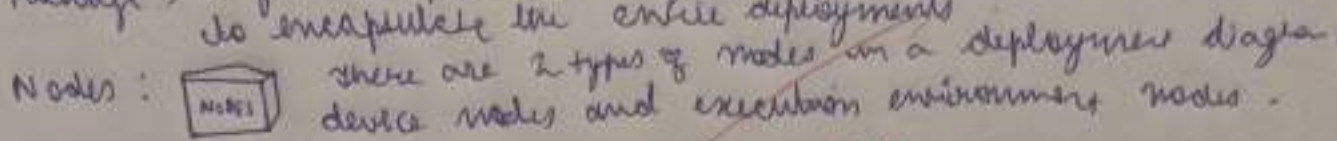 to encapsulate the entire deployments
Nodes : NODES there are 2 types of nodes in a deployment diagra
device nodes and execution environment nodes .